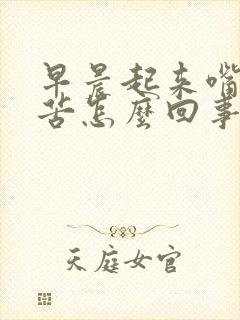 早晨起来嘴
苦怎麼回事
天庭女官